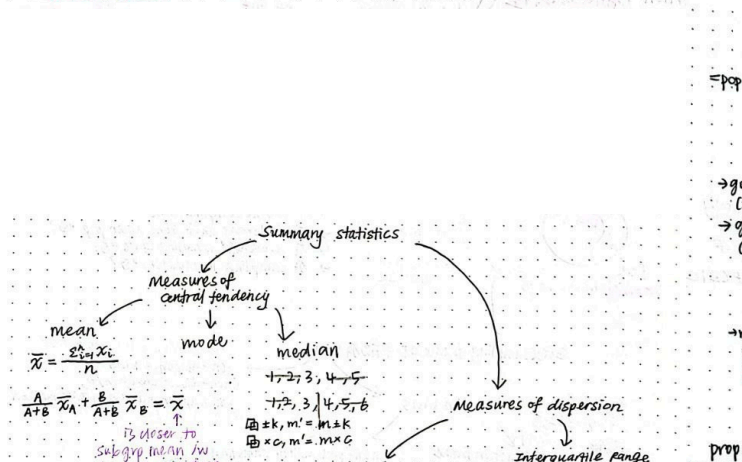 =pop
Summary statistics
Measures of
central tendency
mean
mode
median
x̄ = Σⁿᵢ₌₁ xᵢ / n
1, 2, 3, 4, 5
1, 2, 3, | 4, 5, 6
A/(A+B) x̄_A + B/(A+B) x̄_B = x̄
is closer to
subgrp mean /w
±k, m' = m±k
×c, m' = m×c
Measures of dispersion
Interquartile range
prop